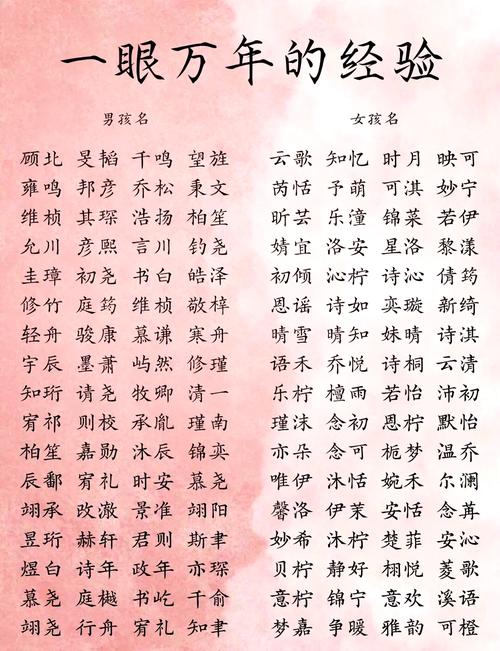 一眼万年的经验
男孩名 女孩名
顾北 旻韬 千鸣 望旌 云歌 知忆 时月 映可
雍鸣 邦彦 乔松 秉文 芮恬 予萌 可淇 妙宁
维桢 其琛 浩扬 柏笙 昕芸 乐潼 锦菜 若伊
允川 彦熙 言川 钧尧 婧宜 洛安 星洛 黎漾
圭璋 初尧 书白 皓泽 初倾 沁柠 诗沁 倩筠
修竹 庭筠 维桢 敬梓 思谣 诗如 奕璇 新绮
轻舟 骏康 慕谦 寒舟 晴雪 晴知 姝晴 诗淇
宇辰 墨萧 屿然 修瑾 语禾 乔悦 诗桐 云清
知珩 请尧 牧卿 清一 乐柠 檀雨 若怡 沛初
宥祁 则校 承胤 瑾南 瑾沫 念初 思柠 默怡
柏笙 嘉勋 沐辰 锦奕 亦朵 念可 栀梦 温乔
辰鄱 宥礼 时安 慕尧 唯伊 沐恬 婉禾 尔澜
翊承 政澈 景准 翊阳 馨洛 伊茉 安恬 念苒
昱珩 赫轩 君则 斯聿 妙希 沐柠 楚菲 安沁
煜白 诗年 政年 亦琛 贝柠 静好 栩悦 菱歌
慕尧 庭樾 书屹 千俞 意柠 锦宁 意欢 溪语
翊尧 行舟 宥礼 知聿 梦嘉 争暖 雅韵 可橙